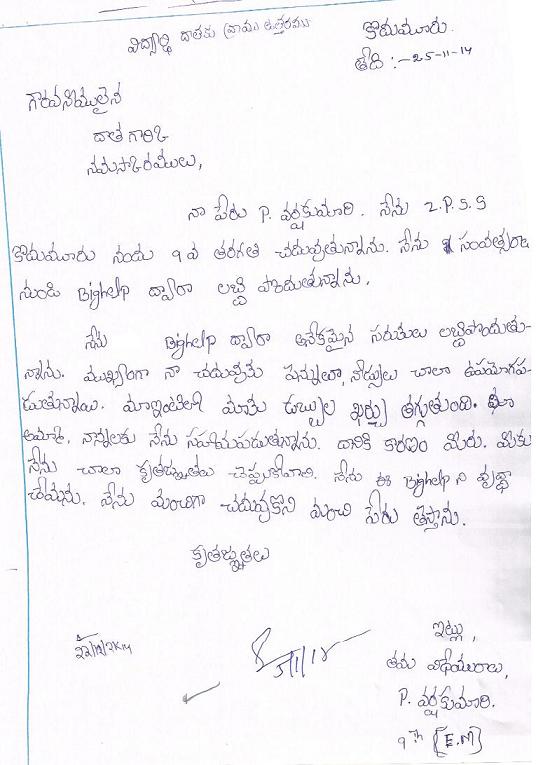 విద్యార్థి దాతకు వ్రాయు ఉత్తరము
కొడుమూరు.
తేది :- 25-11-14
గౌరవనీయులైన
దాత గారికి
నమస్కారములు,
నా పేరు P. వర్షకుమారి. నేను Z.P.S.S
కొడుమూరు నందు 9 వ తరగతి చదువుతున్నాను. నేను సంవత్సరాల
నుండి Bighelp ద్వారా లబ్ధి పొందుతున్నాను.
నేను Bighelp ద్వారా అనేకమైన సరుకులు లబ్ధిపొందుతు-
న్నాను. ముఖ్యంగా నా చదువుకు పెన్నులూ, నోట్సులు చాలా ఉపయోగప-
డుతున్నాయి. మాఇంటిలో మాకు డబ్బుల ఖర్చు తగ్గుతుంది. మా
అమ్మా, నాన్నలకు నేను సహాయపడుతున్నాను. దానికి కారణం మీరు. మీకు
నేను చాలా కృతజ్ఞతలు చెప్పుకోవాలి. నేను ఈ Bighelp ని వృథా
చేయను. నేను మంచిగా చదువుకొని మంచి పేరు తెస్తాను.
కృతజ్ఞతలు
ఇట్లు,
తమ విధేయురాలు,
P. వర్షకుమారి.
9th [E.M]